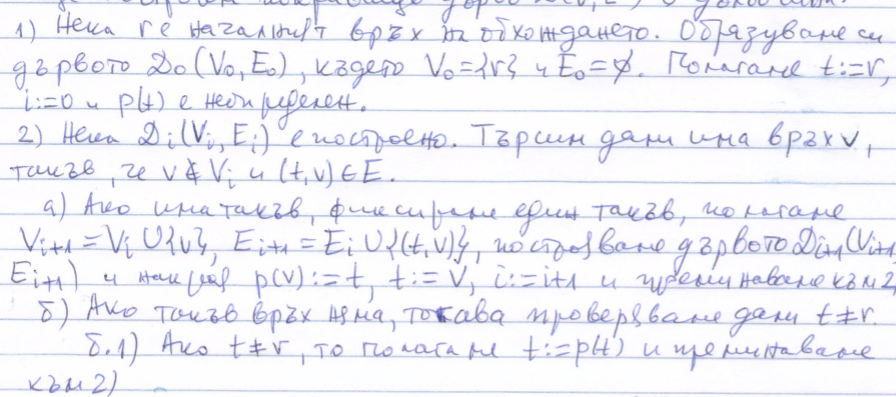 1) Нека r е началният връх на обхождането. Образуваме си
дървото D₀(V₀,E₀), където V₀={r} и E₀=∅. Полагаме t:=r,
i:=0 и p(t) е неопределен.
2) Нека Dᵢ(Vᵢ,Eᵢ) е построено. Търсим дали има връх v,
такъв, че v∉Vᵢ и (t,v)∈E.
а) Ако има такъв, фиксираме един такъв, полагаме
Vᵢ₊₁=Vᵢ∪{v}, Eᵢ₊₁=Eᵢ∪{(t,v)}, построяваме дървото Dᵢ₊₁(Vᵢ₊₁,
Eᵢ₊₁) и накрая p(v):=t, t:=v, i:=i+1 и преминаваме към 2)
б) Ако такъв връх няма, тогава проверяваме дали t≠r.
б.1) Ако t≠r, то полагаме t:=p(t) и преминаваме
към 2)